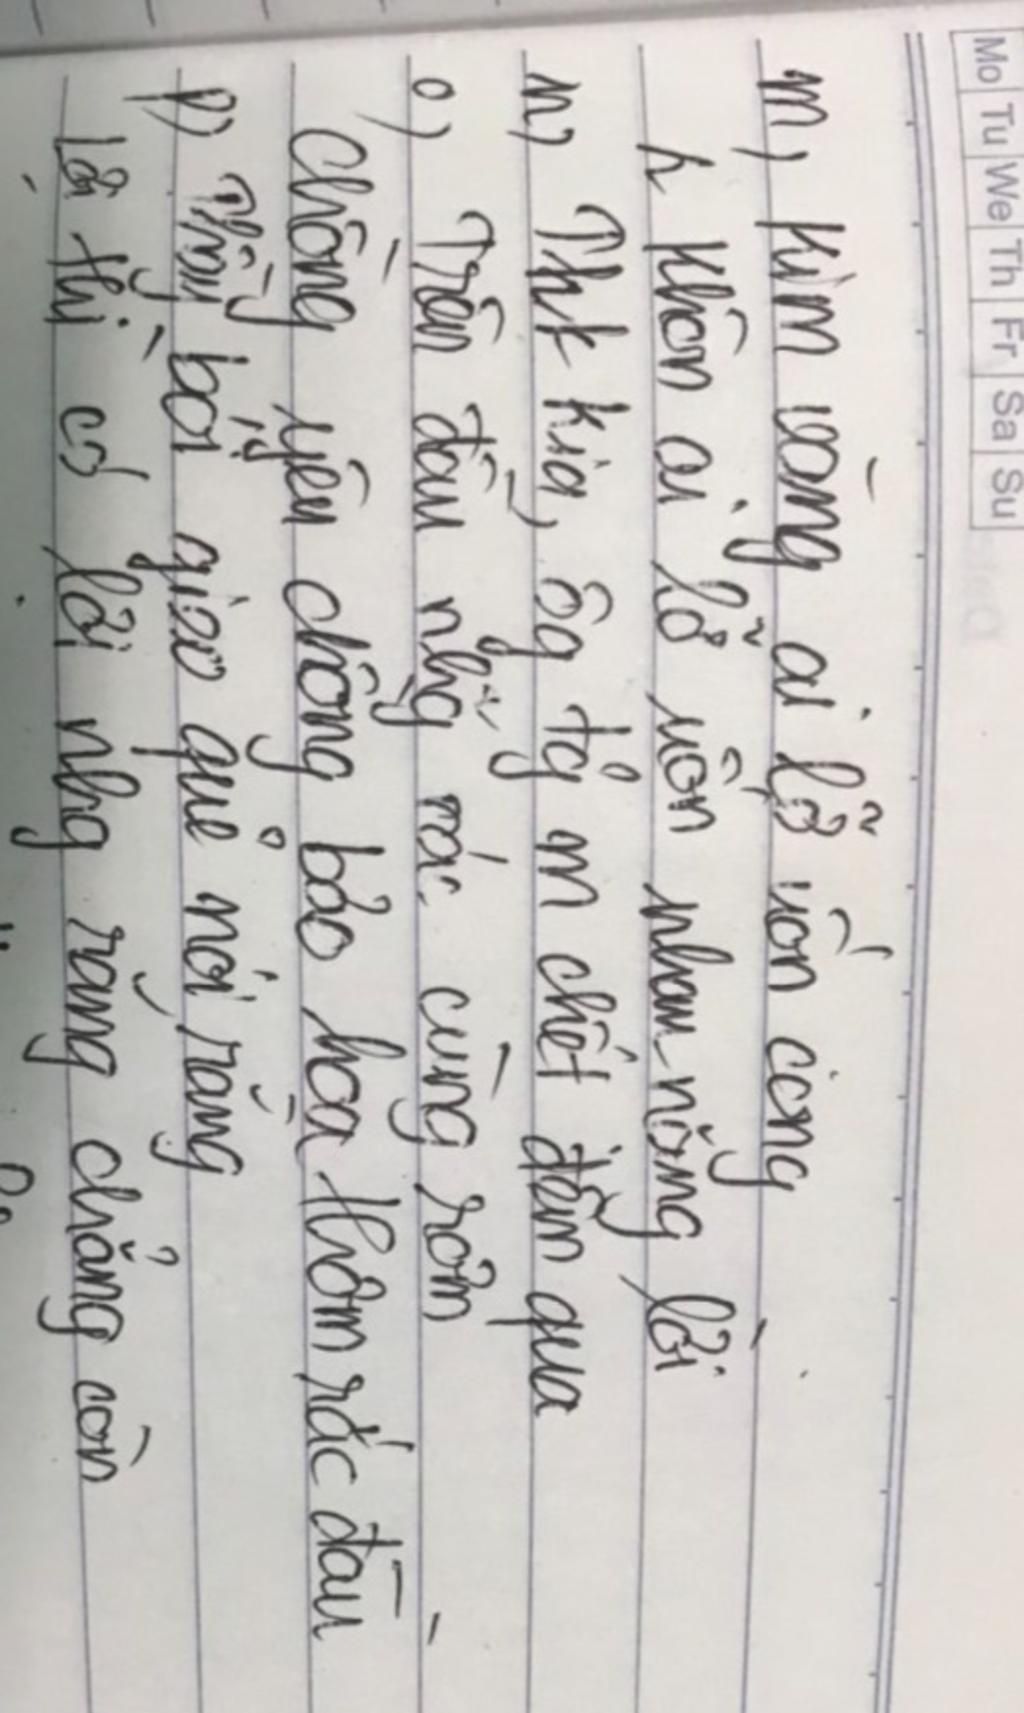 Mo Tu We Th Fr Sa Su
m, Kim vàng ai lỡ uốn cong
k khôn ai lỡ nói nhau nặng lời
n, Thk kia, ôg tg m chết đêm qua
o, Trên đầu nhg rác cùng rơm
Chồng yêu chồng bảo hoa thơm rắc đầu
p, Thầy bói gieo quẻ nói rằng
Lợi thì có lợi nhg răng chẳng còn